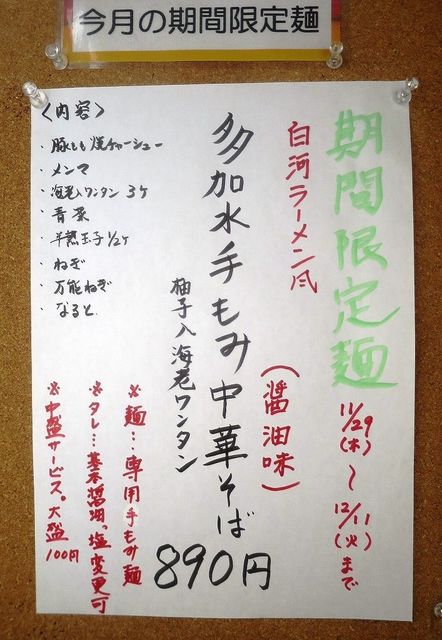 今月の期間限定麺
期間限定麺
11/29(木)〜12/11(火)まで
白河ラーメン風
(醤油味)
多加水手もみ中華そば
柚子入海老ワンタン
890円
<内容>
・豚もも焼チャーシュー
・メンマ
・海老入ワンタン 3ケ
・青菜
・半熟玉子1/2ケ
・ねぎ
・万能ねぎ
・なると
※麺…専用手もみ麺
※タレ…基本醤油。塩変更可
※中盛サービス。大盛100円